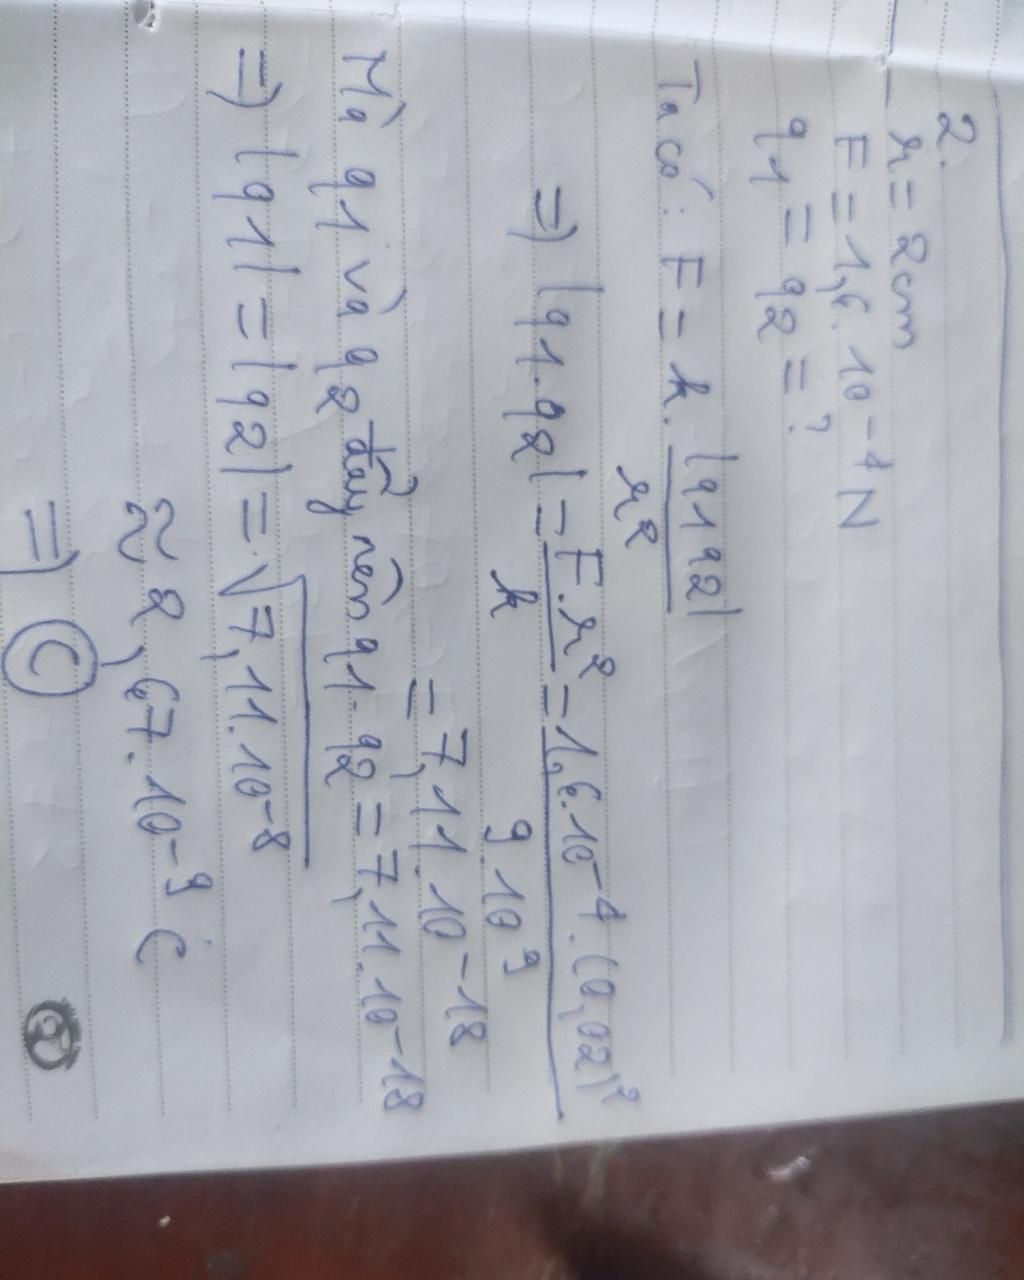 2.
r = 2cm
F = 1,6.10^-4 N
q1 = q2 = ?
Ta có: F = k. |q1q2| / r²
=) |q1.q2| = F.r² / k = 1,6.10^-4.(0,02)² / 9.10^9
= 7,11.10^-18
Mà q1 và q2 đẩy nên q1.q2 = 7,11.10^-18
=) |q1| = |q2| = √7,11.10^-8
≈ 2,67.10^-9 C
=) C